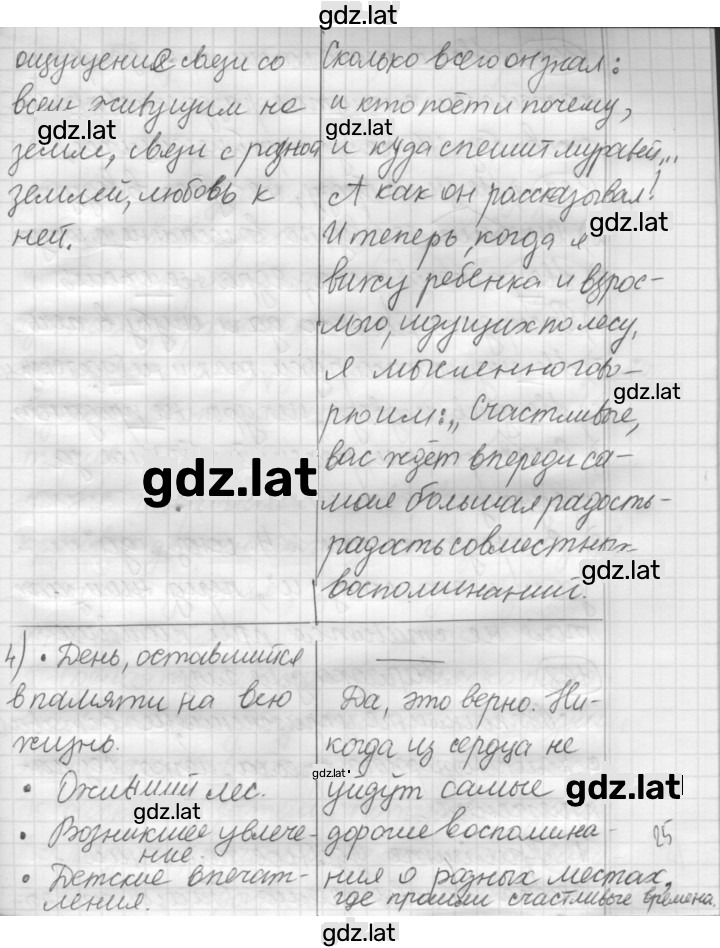 gdz.lat
ощущения связи со
всем живущим на
gdz.lat
земле, связи с родной
землёй, любовь к
ней.
Сколько всего он знал:
и кто поёт и почему,
gdz.lat
и куда спешит муравей...
А как он рассказывал!
gdz.lat
И теперь, когда я
вижу ребёнка и взрос-
лого, идущих по лесу,
я мысленно гово-
gdz.lat
рю им: „Счастливые,
вас ждёт впереди са-
gdz.lat
мая большая радость -
радость совместных
gdz.lat
воспоминаний.
4) • День, оставшийся
в памяти на всю
жизнь.
• Оживший лес.
gdz.lat
• Возникшее увлече-
ние.
• Детские впечат-
ления.
Да, это верно. Ни-
когда из сердца не
gdz.lat
уйдут самые
gdz.lat
дорогие воспомина-
25
ния о родных местах,
где прошли счастливые времена.
gdz.lat